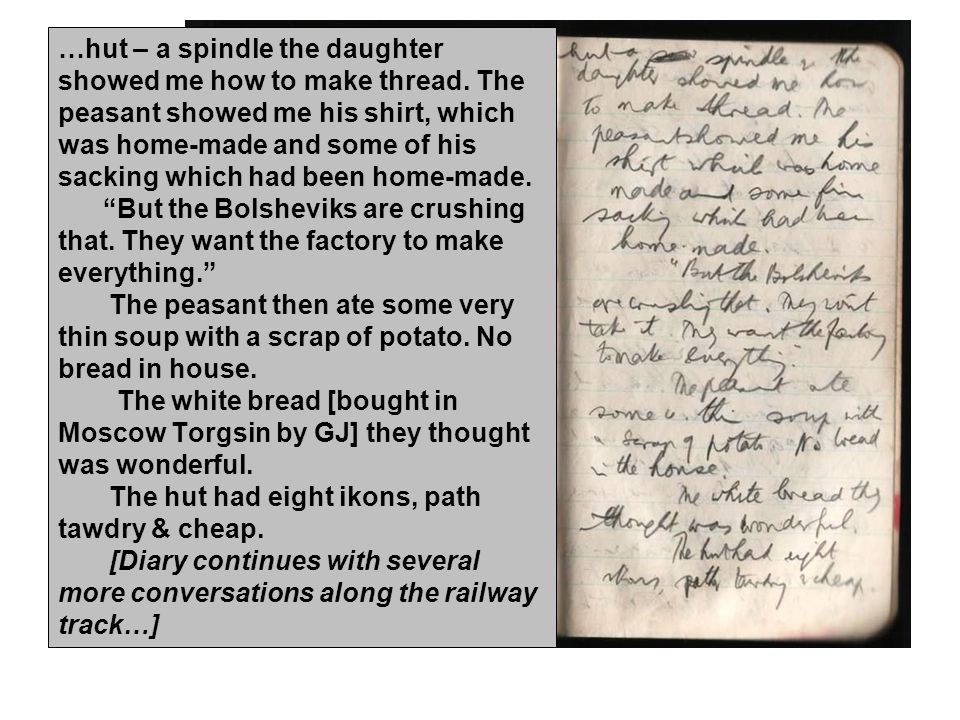 …hut – a spindle the daughter
showed me how to make thread. The
peasant showed me his shirt, which
was home-made and some of his
sacking which had been home-made.
“But the Bolsheviks are crushing
that. They want the factory to make
everything.”
The peasant then ate some very
thin soup with a scrap of potato. No
bread in house.
The white bread [bought in
Moscow Torgsin by GJ] they thought
was wonderful.
The hut had eight ikons, path
tawdry & cheap.
[Diary continues with several
more conversations along the railway
track…]
hut – a spindle & the
daughter showed me how
to make thread. The
peasant showed me his
shirt which was home
made and some fine
sacking which had been
home-made.
"But the Bolsheviks
are crushing that. They won't
take it. They want the factory
to make everything"
The peasant ate
some v. thin soup with
a scrap of potato. No bread
in the house.
The white bread they
thought was wonderful.
The hut had eight
ikons, tawdry & cheap.